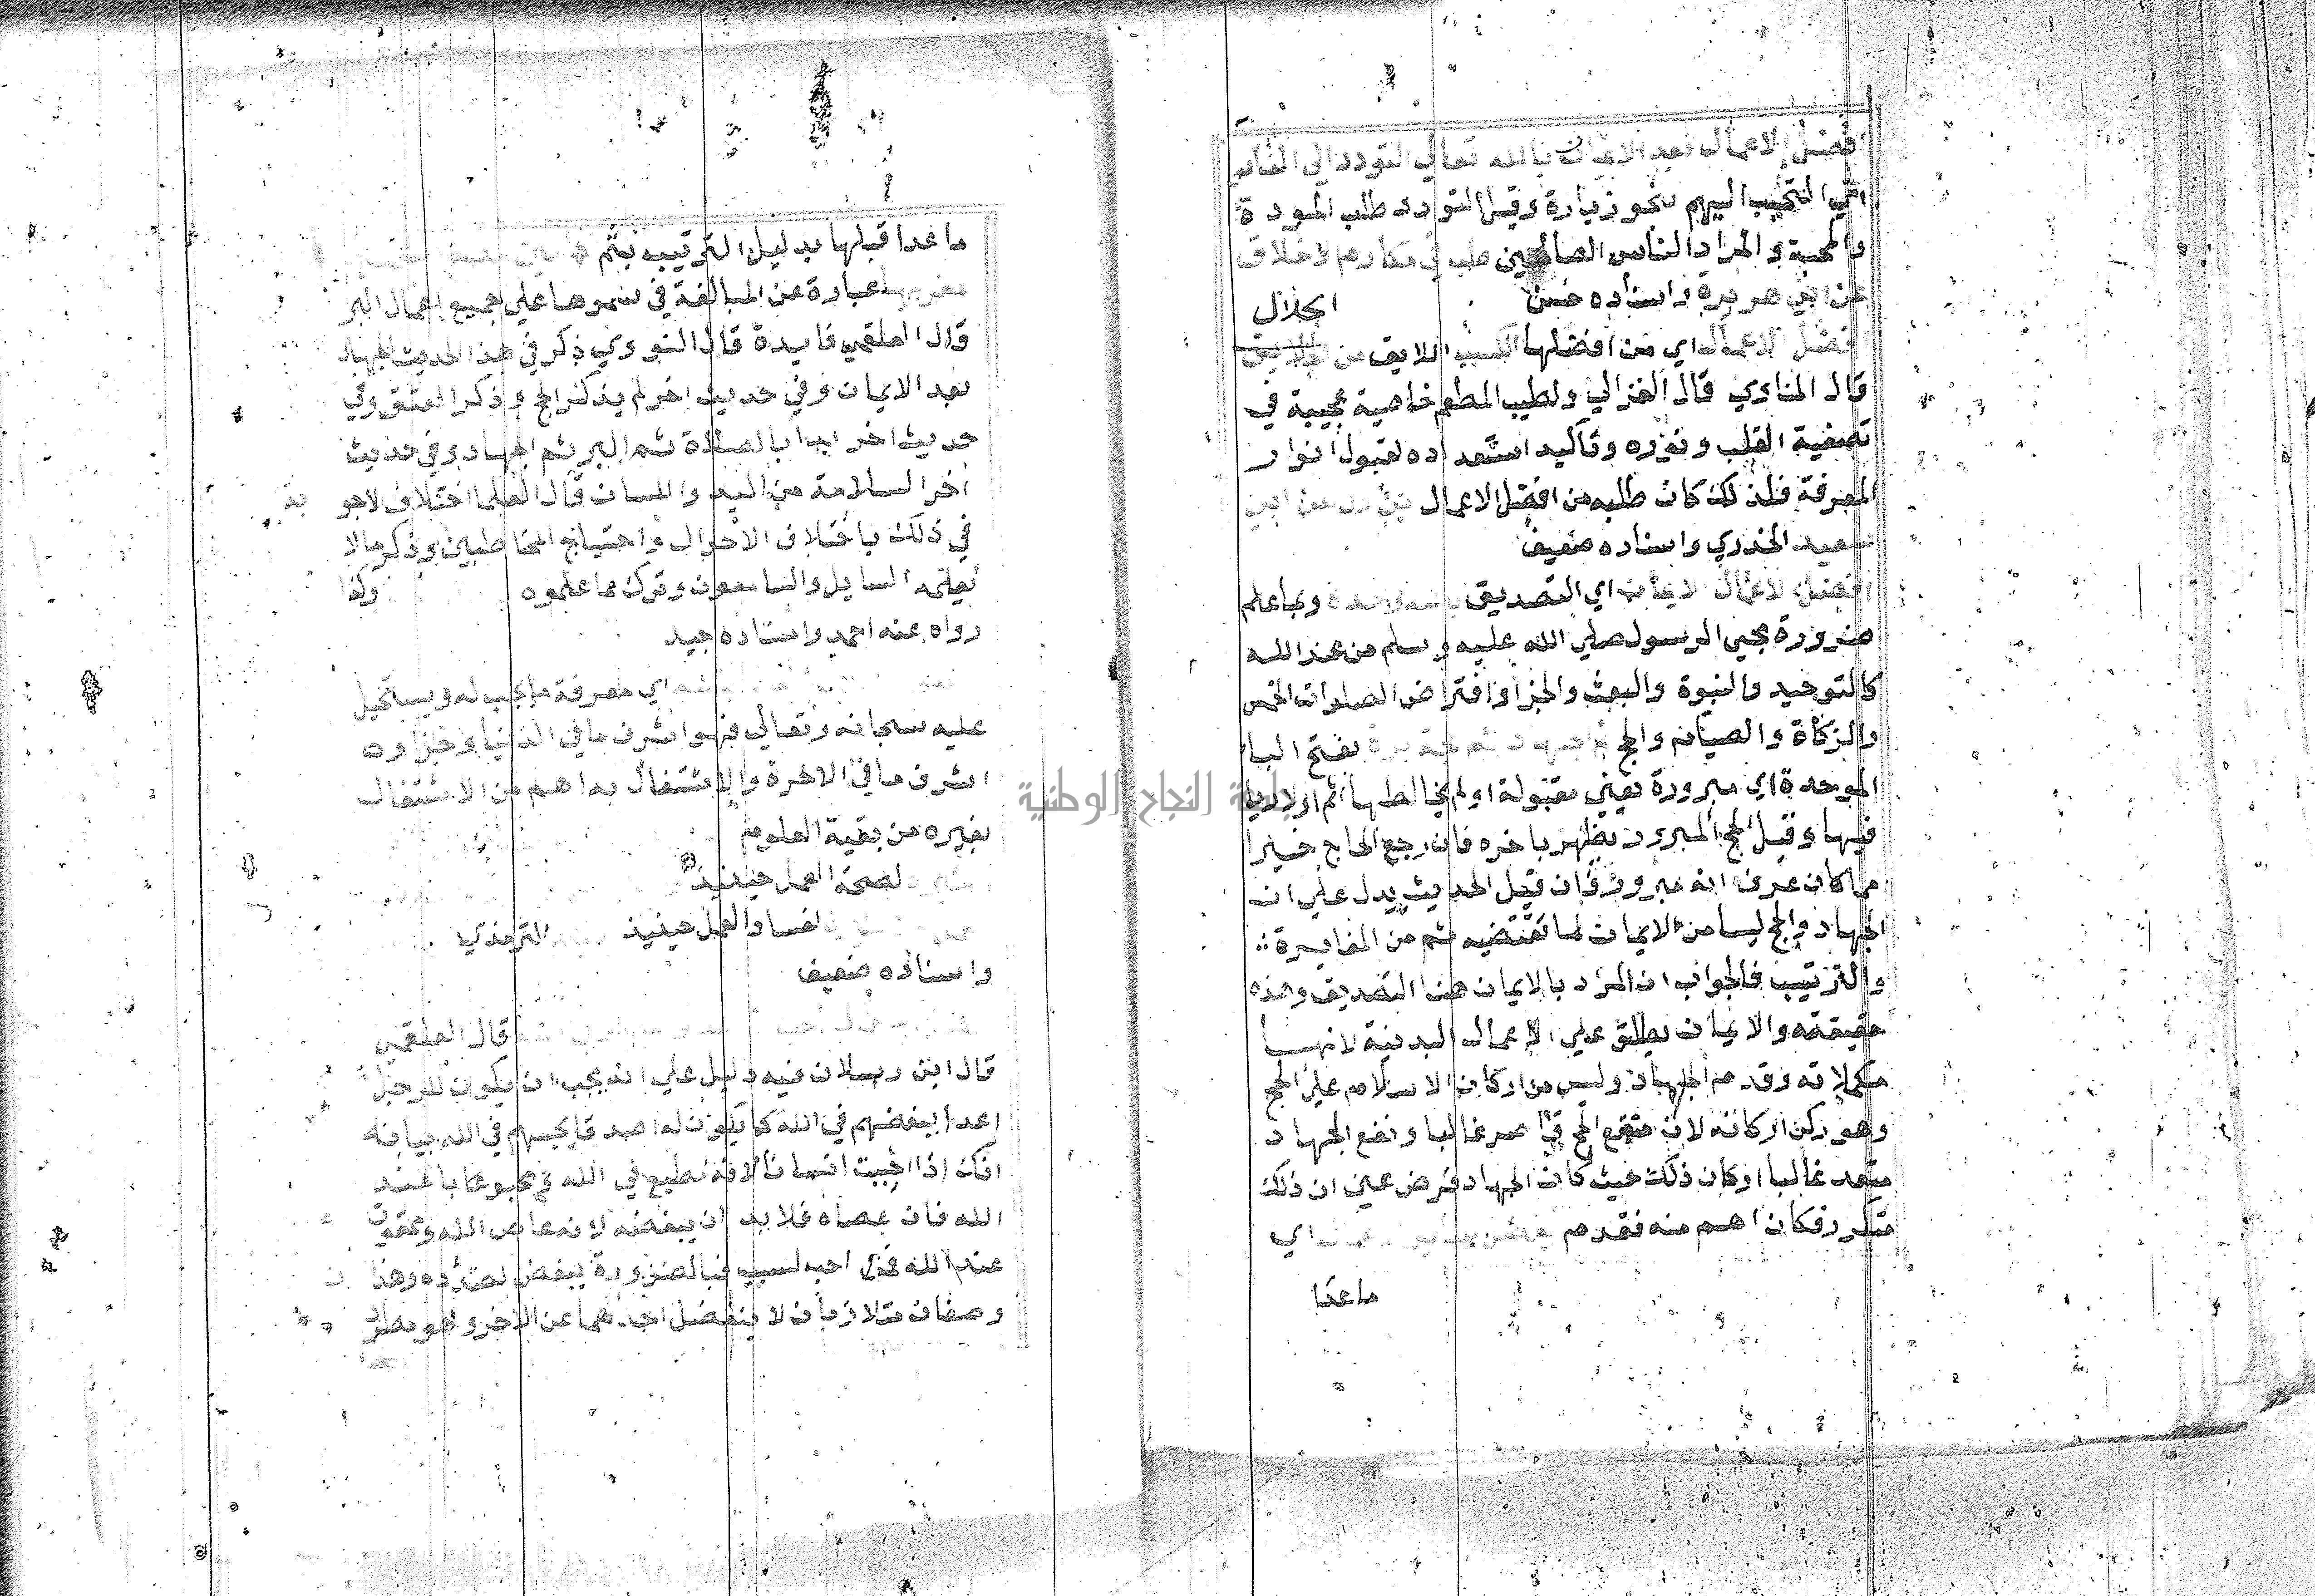 افضل الاعمال بعد الايمان بالله تعالي التودد الي الناس
اي التحبب اليهم بنحو زيارة وقيل التودد طلب المودة
والمحبة والمراد الناس الصالحين في مكارم الاخلاق
عن ابي هريرة واسناده حسن
افضل الاعمال اي من افضلها الكسب اللايق من الحلال
قال المناوي قال الغزالي ولطيب المطعم خاصية عجيبة في
تصفية القلب وتنوره وتأكيد استعداده لقبول انوار
المعرفة فلذلك كان طلبه من افضل الاعمال عن ابي
سعيد الخدري واسناده ضعيف
افضل الاعمال الايمان اي التصديق بالله وحده وبما علم
ضرورة مجي الرسول صلي الله عليه وسلم من عند الله
كالتوحيد والنبوة والبعث والجزا وافتراض الصلوات الخمس
والزكاة والصيام والحج ثم الجهاد ثم حجة برة بفتح البا
الموحدة اي مبرورة يعني مقبولة او لم يخالطها اثم اولا ريا
فيها وقيل الحج المبرور يظهر باخره فان رجع الحاج خيرا
مما كان عرف انه مبرور فان قيل الحديث يدل علي ان
الجهاد والحج ليسا من الايمان لما تقتضيه ثم من المغايرة
والترتيب فالجواب ان المراد بالايمان هنا التصديق وهذه
حقيقته والايمان يطلق علي الاعمال البدنية لانها
مكملاته وقدم الجهاد وليس من اركان الاسلام علي الحج
وهو ركن اركانه لان نفع الحج قاصر غالبا ونفع الجهاد
متعد غالبا او كان ذلك حيث كان الجهاد فرض عين ان ذلك
متكرر فكان اهم منه فقدم اي
ما عدا
ما عدا قبلها بدليل الترتيب بثم
مغربها عبارة عن المبالغة في سموها علي جميع اعمال البر
قال العلقمي فايدة قال النووي ذكر في هذا الحديث الجهاد
بعد الايمان وفي حديث اخر لم يذكر الحج وذكر العتق وفي
حديث اخر ابدا بالصلاة ثم البر ثم الجهاد وفي حديث
اخر السلامة من اليد واللسان قال العلما اختلاف الاجوبة
في ذلك باختلاف الاحوال واحتياج المخاطبين وذكر مالا
يعلمه السايل والسامعون وترك ما علموه وكذا
رواه عنه احمد واسناده جيد
اي معرفة ما يجب له ويستحيل
عليه سبحانه وتعالي فهو اشرف ما في الدنيا وجزاوه
اشرف ما في الاخرة والاشتغال به اهم من الاشتغال
بغيره من بقية العلوم
لصحة العمل حينيذ
افساد العمل حينيذ الترمذي
واسناده ضعيف
قال العلقمي
قال ابن رسلان فيه دليل علي انه يجب ان يكون للرجل
اعدا يبغضهم في الله كما يكون له اصدقا يحبهم في الله بيانه
انك اذا احببت انسانا لانه مطيع في الله محبوبا عند
الله فان عصاه فلا بد ان يبغضه لانه عاص الله وممقوت
عند الله فمن احب لسبب فبالضرورة يبغض لضده وهذان
وصفان متلازمان لا ينفصل احدهما عن الاخر وهو مطرد